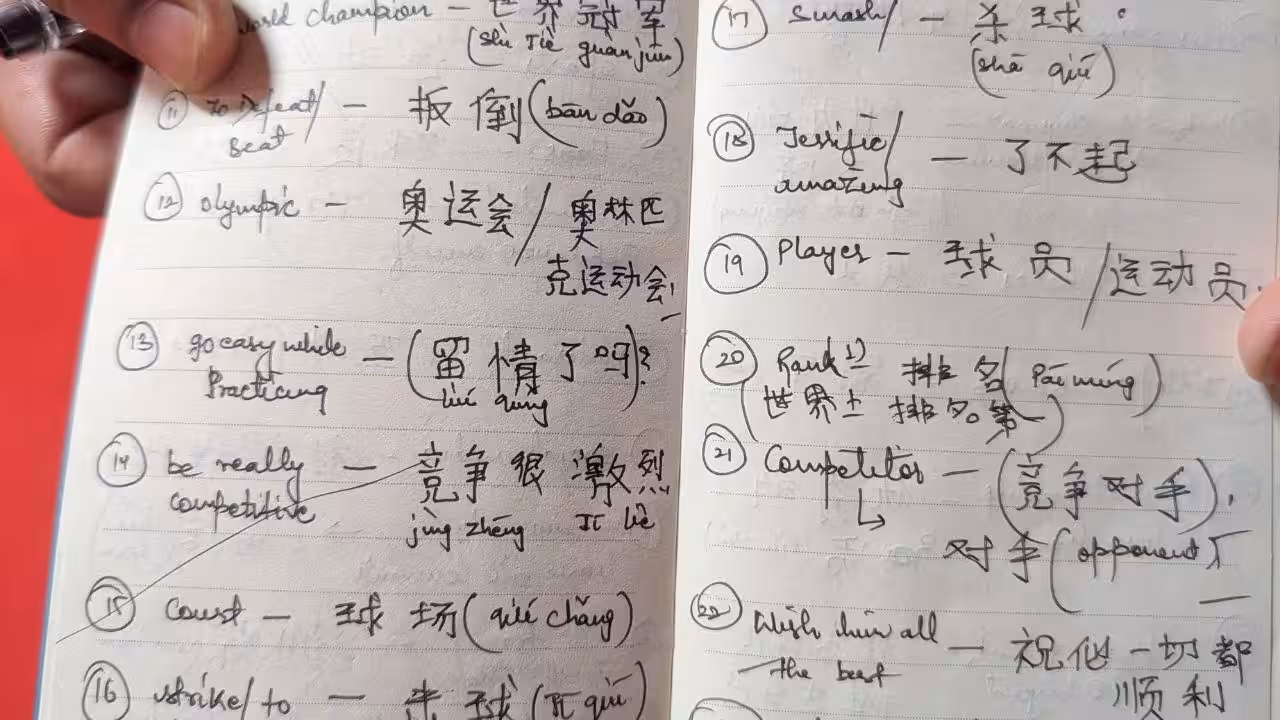 world champion – 世界冠军
(shì Jiè guàn jūn)
⑪ to Defeat/ – 扳倒 (bān dǎo)
Beat
⑫ olympic – 奥运会 / 奥林匹
克运动会
⑬ go easy while – (留情了吗)?
Practicing liú qíng
⑭ be really – 竞争很激烈
competitive jìng zhēng JI liè
⑮ Court – 球场 (qiú chǎng)
⑯ strike/ to – 击球 (JI qiú)
⑰ Smash/ – 杀球.
(shā qiú)
⑱ Terrific/ – 了不起
amazing
⑲ Player – 球员 / 运动员.
⑳ Rank 排名 (Pái míng)
世界上排名第一)
㉑ Competitor – (竞争对手).
↳ 对手 (opponent)
㉒ Wish him all – 祝他一切都
the best 顺利